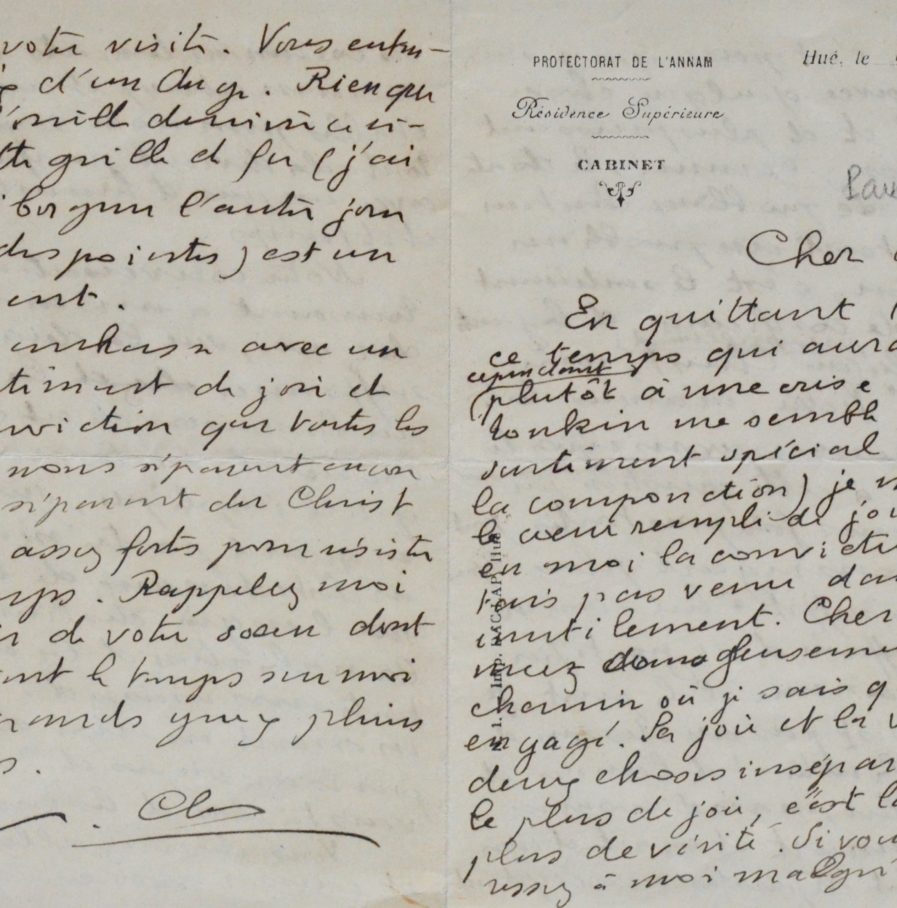 votre visite. Vous enten-
d'un Duge. Rien que
l'oreille
tte grille de fer (j'ai
l'autre jour
des pointes) est un
ent.
embrasse avec un
timent de joie et
nviction que toutes les
nous séparent encore
séparent du Christ
assez fortes pour résister
mps. Rappelez moi
ir de votre soeur dont
ant le temps sur moi
grands yeux pleins
s.
PROTECTORAT DE L'ANNAM
Résidence Supérieure
CABINET
Hué, le
Pau
Cher
En quittant
ce temps qui aura
cependant
plutôt à une crise
Tonkin me semble
sentiment spécial
la componction) je
le coeur rempli de joie
en moi la convictio
tais pas venu dan
inutilement. Cher
chemin où je sais q
engagé. La joie et la v
deux choses insépar
le plus de joie, c'est là
plus de vérité. Si vou
à moi malgré